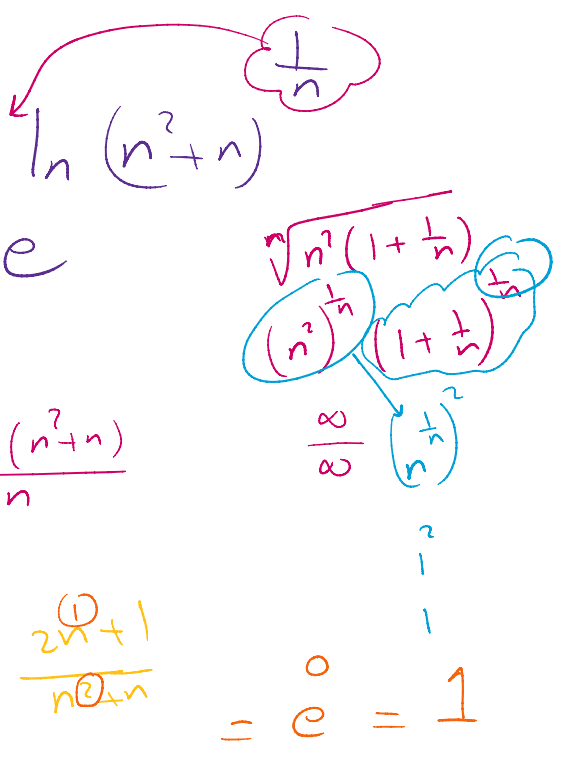 1/n
ln (n² + n)
e
ⁿ√(n² (1 + 1/n))
(n²)^(1/n) (1 + 1/n)^(1/n)
(n² + n) / n
∞/∞ (n^(1/n))²
1²
1
(2n + 1) / (n² + n)
= e⁰ = 1